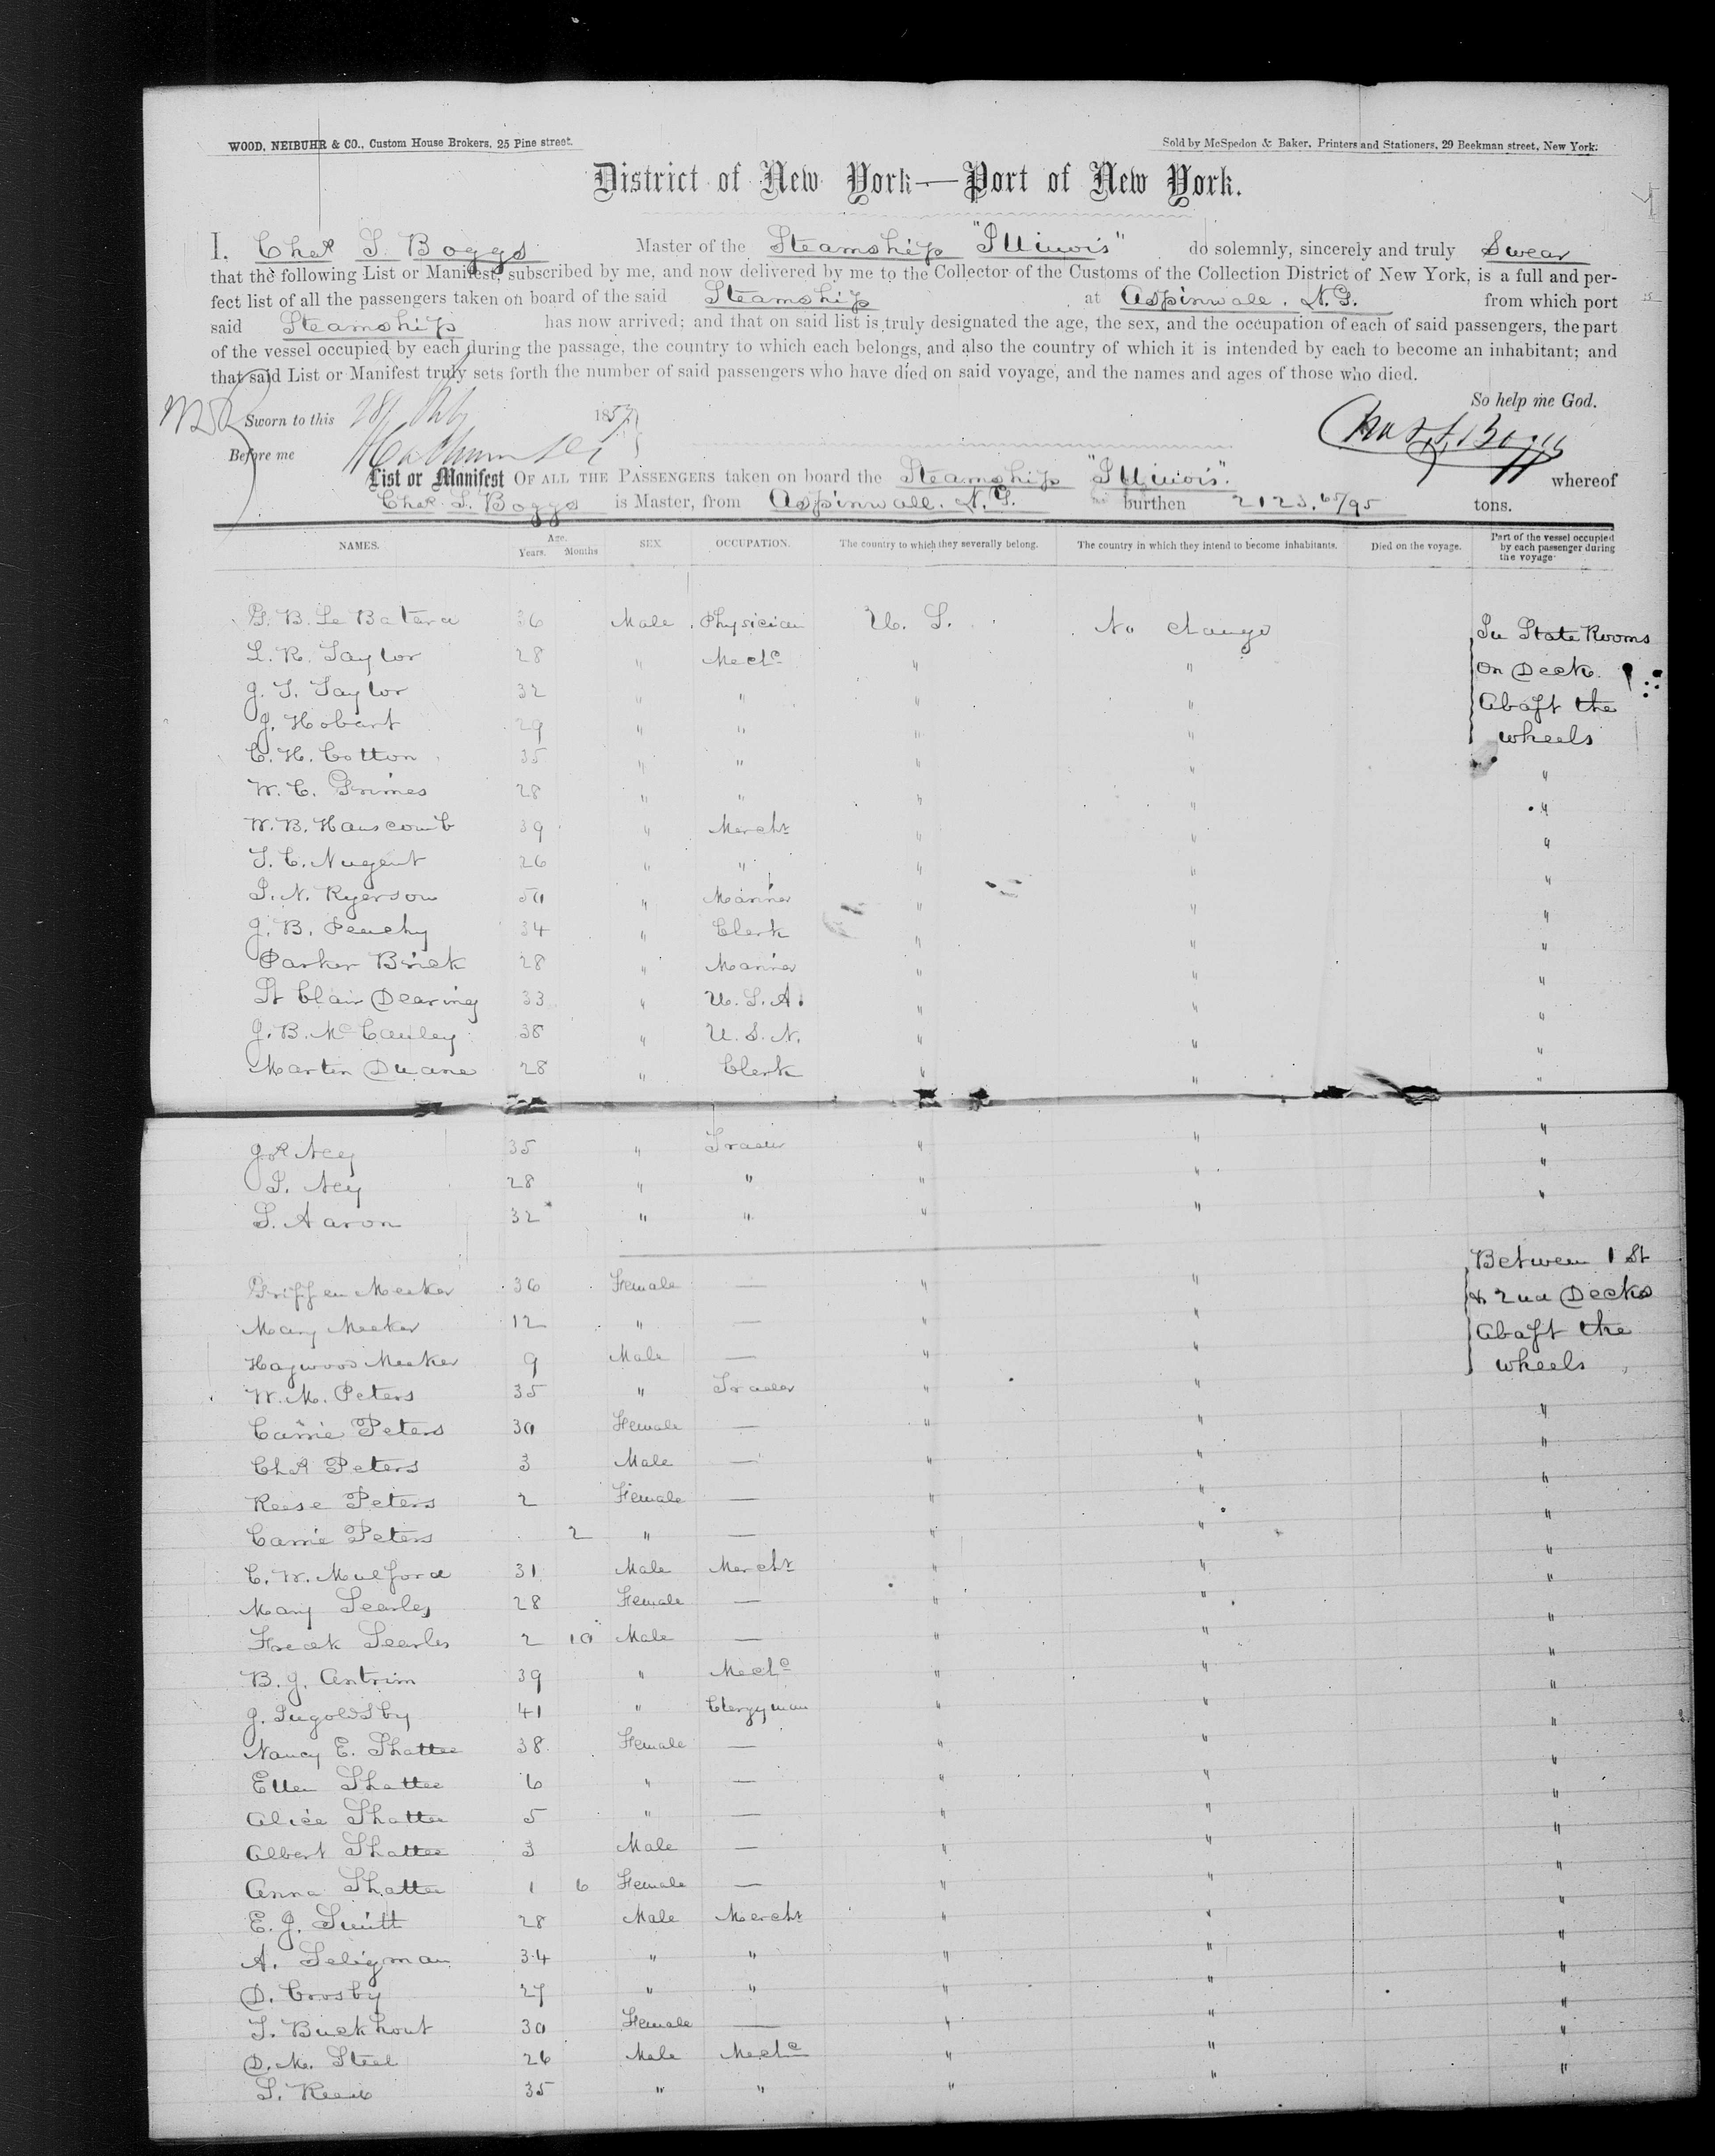 WOOD, NEIBUHR & CO., Custom House Brokers, 25 Pine street.
Sold by McSpedon & Baker, Printers and Stationers, 29 Beekman street, New York.
District of New York—Port of New York.
I, Chas S. Boggs Master of the Steamship "Illinois" do solemnly, sincerely and truly Swear
that the following List or Manifest, subscribed by me, and now delivered by me to the Collector of the Customs of the Collection District of New York, is a full and per-
fect list of all the passengers taken on board of the said Steamship at Aspinwall. N.G. from which port
said Steamship has now arrived; and that on said list is truly designated the age, the sex, and the occupation of each of said passengers, the part
of the vessel occupied by each during the passage, the country to which each belongs, and also the country of which it is intended by each to become an inhabitant; and
that said List or Manifest truly sets forth the number of said passengers who have died on said voyage, and the names and ages of those who died.
So help me God.
Sworn to this 28 1857
Chas S. Boggs
Before me
List or Manifest OF ALL THE PASSENGERS taken on board the Steamship "Illinois". whereof
Chas. S. Boggs is Master, from Aspinwall. N.G. burthen 2123.65/95 tons.
NAMES. Age. Years. Months SEX. OCCUPATION. The country to which they severally belong. The country in which they intend to become inhabitants. Died on the voyage. Part of the vessel occupied by each passenger during the voyage
36 Male Physician U. S. No change In State Rooms
L. R. Taylor 28 " Mechc " " On Deck.
J. S. Taylor 32 " " " " Abaft the
J. Hobart 29 " " " " wheels
C. H. Cotton 35 " " " " "
W. C. Grimes 28 " " " " "
W. B. Hanscomb 39 " Mercht " " "
T. C. Nugent 26 " " " " "
S. N. Ryerson 50 " Mariner " " "
J. B. Peachy 34 " Clerk " " "
Parker Brick 28 " Mariner " " "
St Clair Dearing 33 " U. S. A. " " "
J. B. McCauley 38 " U. S. N. " " "
Martin Duane 28 " Clerk " " "
Ney 35 " Trader " " "
S. Ney 28 " " " " "
S. Aaron 32 " " " " "
Griffen Meeker 36 Female — " " Between 1st
Mary Meeker 12 " — " " & 2nd Decks
Haywood Meeker 9 Male — " " Abaft the
W. M. Peters 35 " Trader " " wheels
Carrie Peters 30 Female — " " "
Chs Peters 3 Male — " " "
Reese Peters 2 Female — " " "
Carrie Peters 2 " — " " "
C. W. Mulford 31 Male Mercht " " "
Mary Searles 28 Female — " " "
Fredk Searles 2 10 Male — " " "
B. J. Antrim 39 " Mechc " " "
J. Ingoldsby 41 " Clergyman " " "
Nancy E. Shattee 38 Female — " " "
Ellen Shattee 6 " — " " "
Alice Shattee 5 " — " " "
Albert Shattee 3 Male — " " "
Anna Shattee 1 6 Female — " " "
E. J. Smith 28 Male Mercht " " "
A. Seligman 34 " " " " "
D. Crosby 27 " " " " "
T. Buckhout 30 Female — " " "
D. M. Steel 26 Male Mechc " " "
35 " " " " "